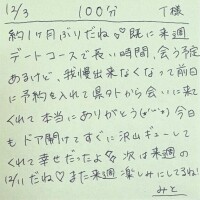 12/3 100分 T様
約1ヶ月ぶりだね♡♡ 既に来週
デートコースで長い時間、会う予定
あるけど、我慢出来なくなって前日
に予約を入れて県外から会いに来て
くれて本当にありがとう(๑'ᵕ'๑) 今日
もドア開けてすぐに沢山ギューして
くれて幸せだったよ♡ 次は来週の
12/11だね♡ また来週楽しみにしてるね!
みと